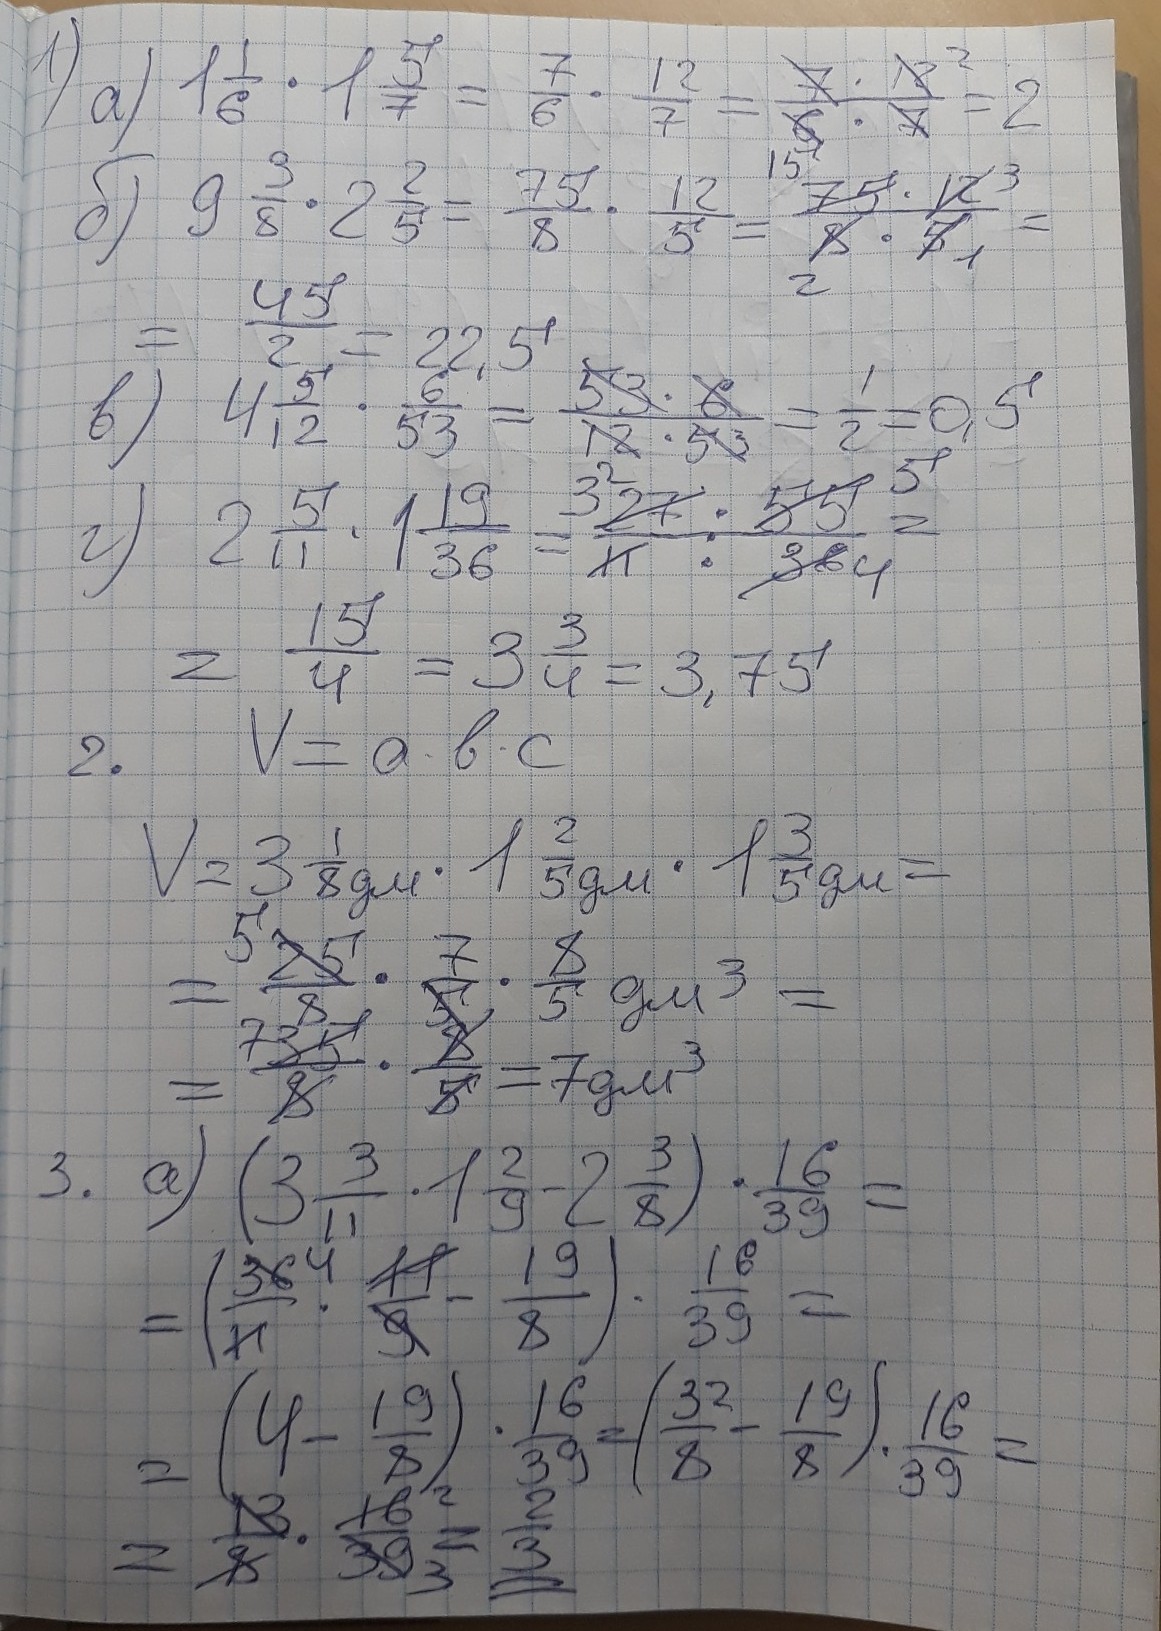 1) а) 1 1/6 · 1 5/7 = 7/6 · 12/7 = (7 · 12 2)/(6 · 7) = 2
б) 9 3/8 · 2 2/5 = 75/8 · 12/5 = (15 75 · 12 3)/(2 8 · 5 1) =
= 45/2 = 22,5
в) 4 5/12 · 6/53 = (53 · 6)/(12 2 · 53) = 1/2 = 0,5
г) 2 5/11 · 1 19/36 = (3 27 · 55 5)/(11 · 36 4) =
= 15/4 = 3 3/4 = 3,75
2. V = a · b · c
V = 3 1/8 дм · 1 2/5 дм · 1 3/5 дм =
= 5 25/8 · 7/5 · 8/5 дм³ =
= 7 35/8 · 8/5 = 7 дм³
3. а) (3 3/11 · 1 2/9 - 2 3/8) · 16/39 =
= (36 4/11 · 11/9 - 19/8) · 16/39 =
= (4 - 19/8) · 16/39 = (32/8 - 19/8) · 16/39 =
= 13/8 · 16 2/39 3 = 2/3